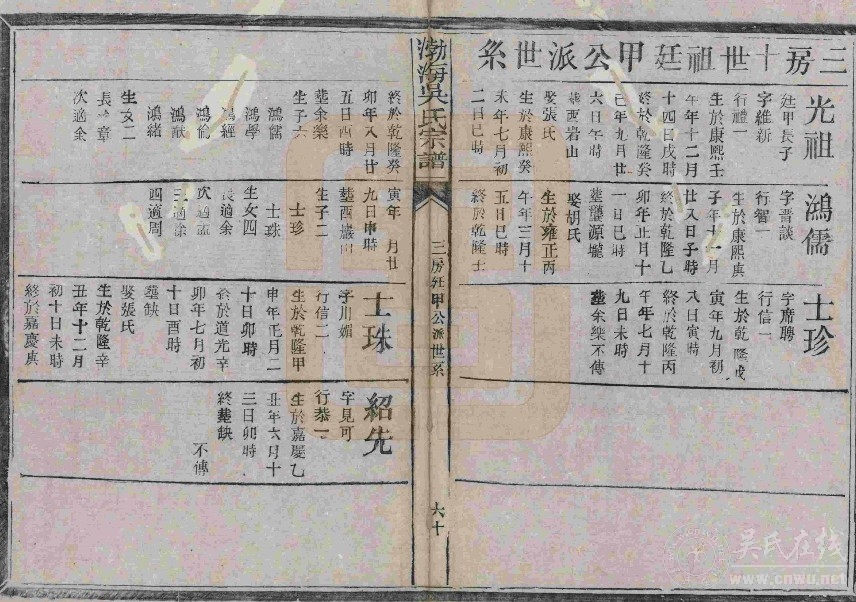 三房十世祖廷甲公派世系
光祖
廷甲長子
字維新
行禮一
生於康熙壬
午年十二月
十四日戌時
終於乾隆癸
巳年九月廿
六日午時
葬西岩山
娶張氏
生於康熙癸
未年七月初
二日巳時
終於乾隆癸
卯年八月廿
五日酉時
葬余樂
生子六
鴻儒
鴻學
鴻經
鴻倫
鴻猷
鴻緒
生女二
長適章
次適余
鴻儒
字晋談
行智一
生於康熙庚
子年十一月
廿八日子時
終於乾隆乙
卯年正月十
一日巳時
葬瓏源壠
娶胡氏
生於雍正丙
午年三月十
五日巳時
終於乾隆士
寅年 月廿
九日申時
葬西巖山
生子二
士珍
士珠
生女四
長適余
次適孟
三適涂
四適周
士珍
字席聘
行信一
生於乾隆戊
寅年九月初
八日寅時
終於乾隆丙
午年七月十
九日未時
葬余樂不傳
士珠
字川媚
行信二
生於乾隆甲
申年正月二
十日卯時
終於道光辛
卯年七月初
十日酉時
葬缺
娶張氏
生於乾隆辛
丑年十二月
初十日未時
終於嘉慶庚
紹先
字見可
行恭一
生於嘉慶乙
丑年六月十
三日卯時
終葬缺
不傳
渤海吳氏宗譜
三房廷甲公派世系
六十
吴氏在线
www.cnwu.net